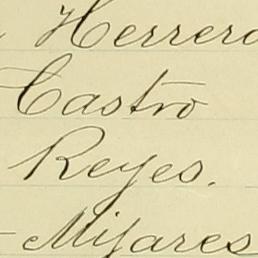 Herrero
Castro
Reyes.
- Mijares